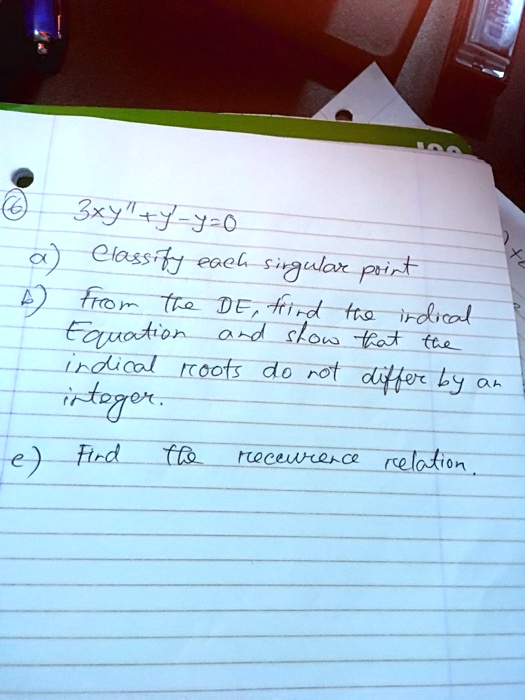 6 3xy"+y'-y=0
a) Classify each singular point
b) From the DE, find the indical
Equation and show that the
indical roots do not differ by an
integer.
c) Find the recurrence relation.